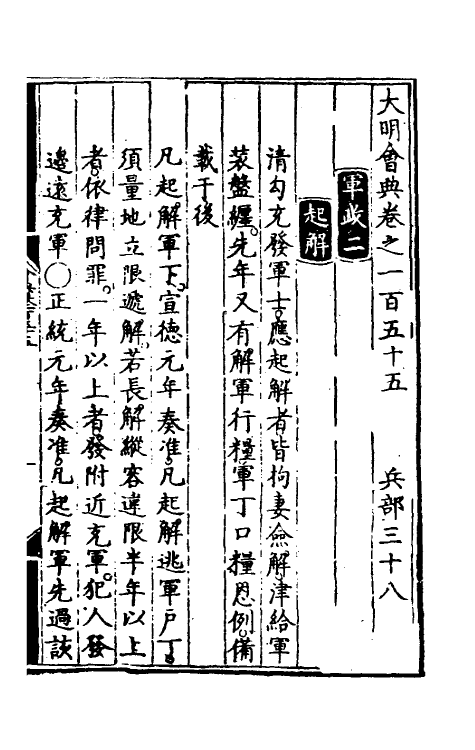 大明會典卷之一百五十五 兵部三十八
軍政二
起解
清勾充發軍士。應起解者。皆拘妻僉解。津給軍
裝盤纏。先年又有解軍行糧。軍丁口糧恩例。備
載于後
凡起解軍丁。宣德元年奏准。凡起解逃軍戶丁。
須量地立限遞解。若長解縱容違限半年以上
者。依律問罪。一年以上者。發附近充軍。犯人發
邊遠充軍○正統元年奏准。凡起解軍先過該